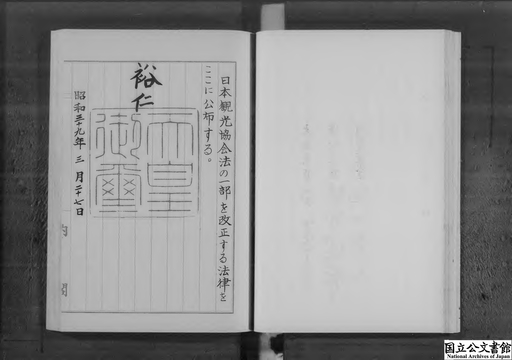 日本観光協会法の一部を改正する法律を
ここに公布する。
裕仁
天皇
御璽
昭和三十九年三月二十七日
内閣
国立公文書館
National Archives of Japan